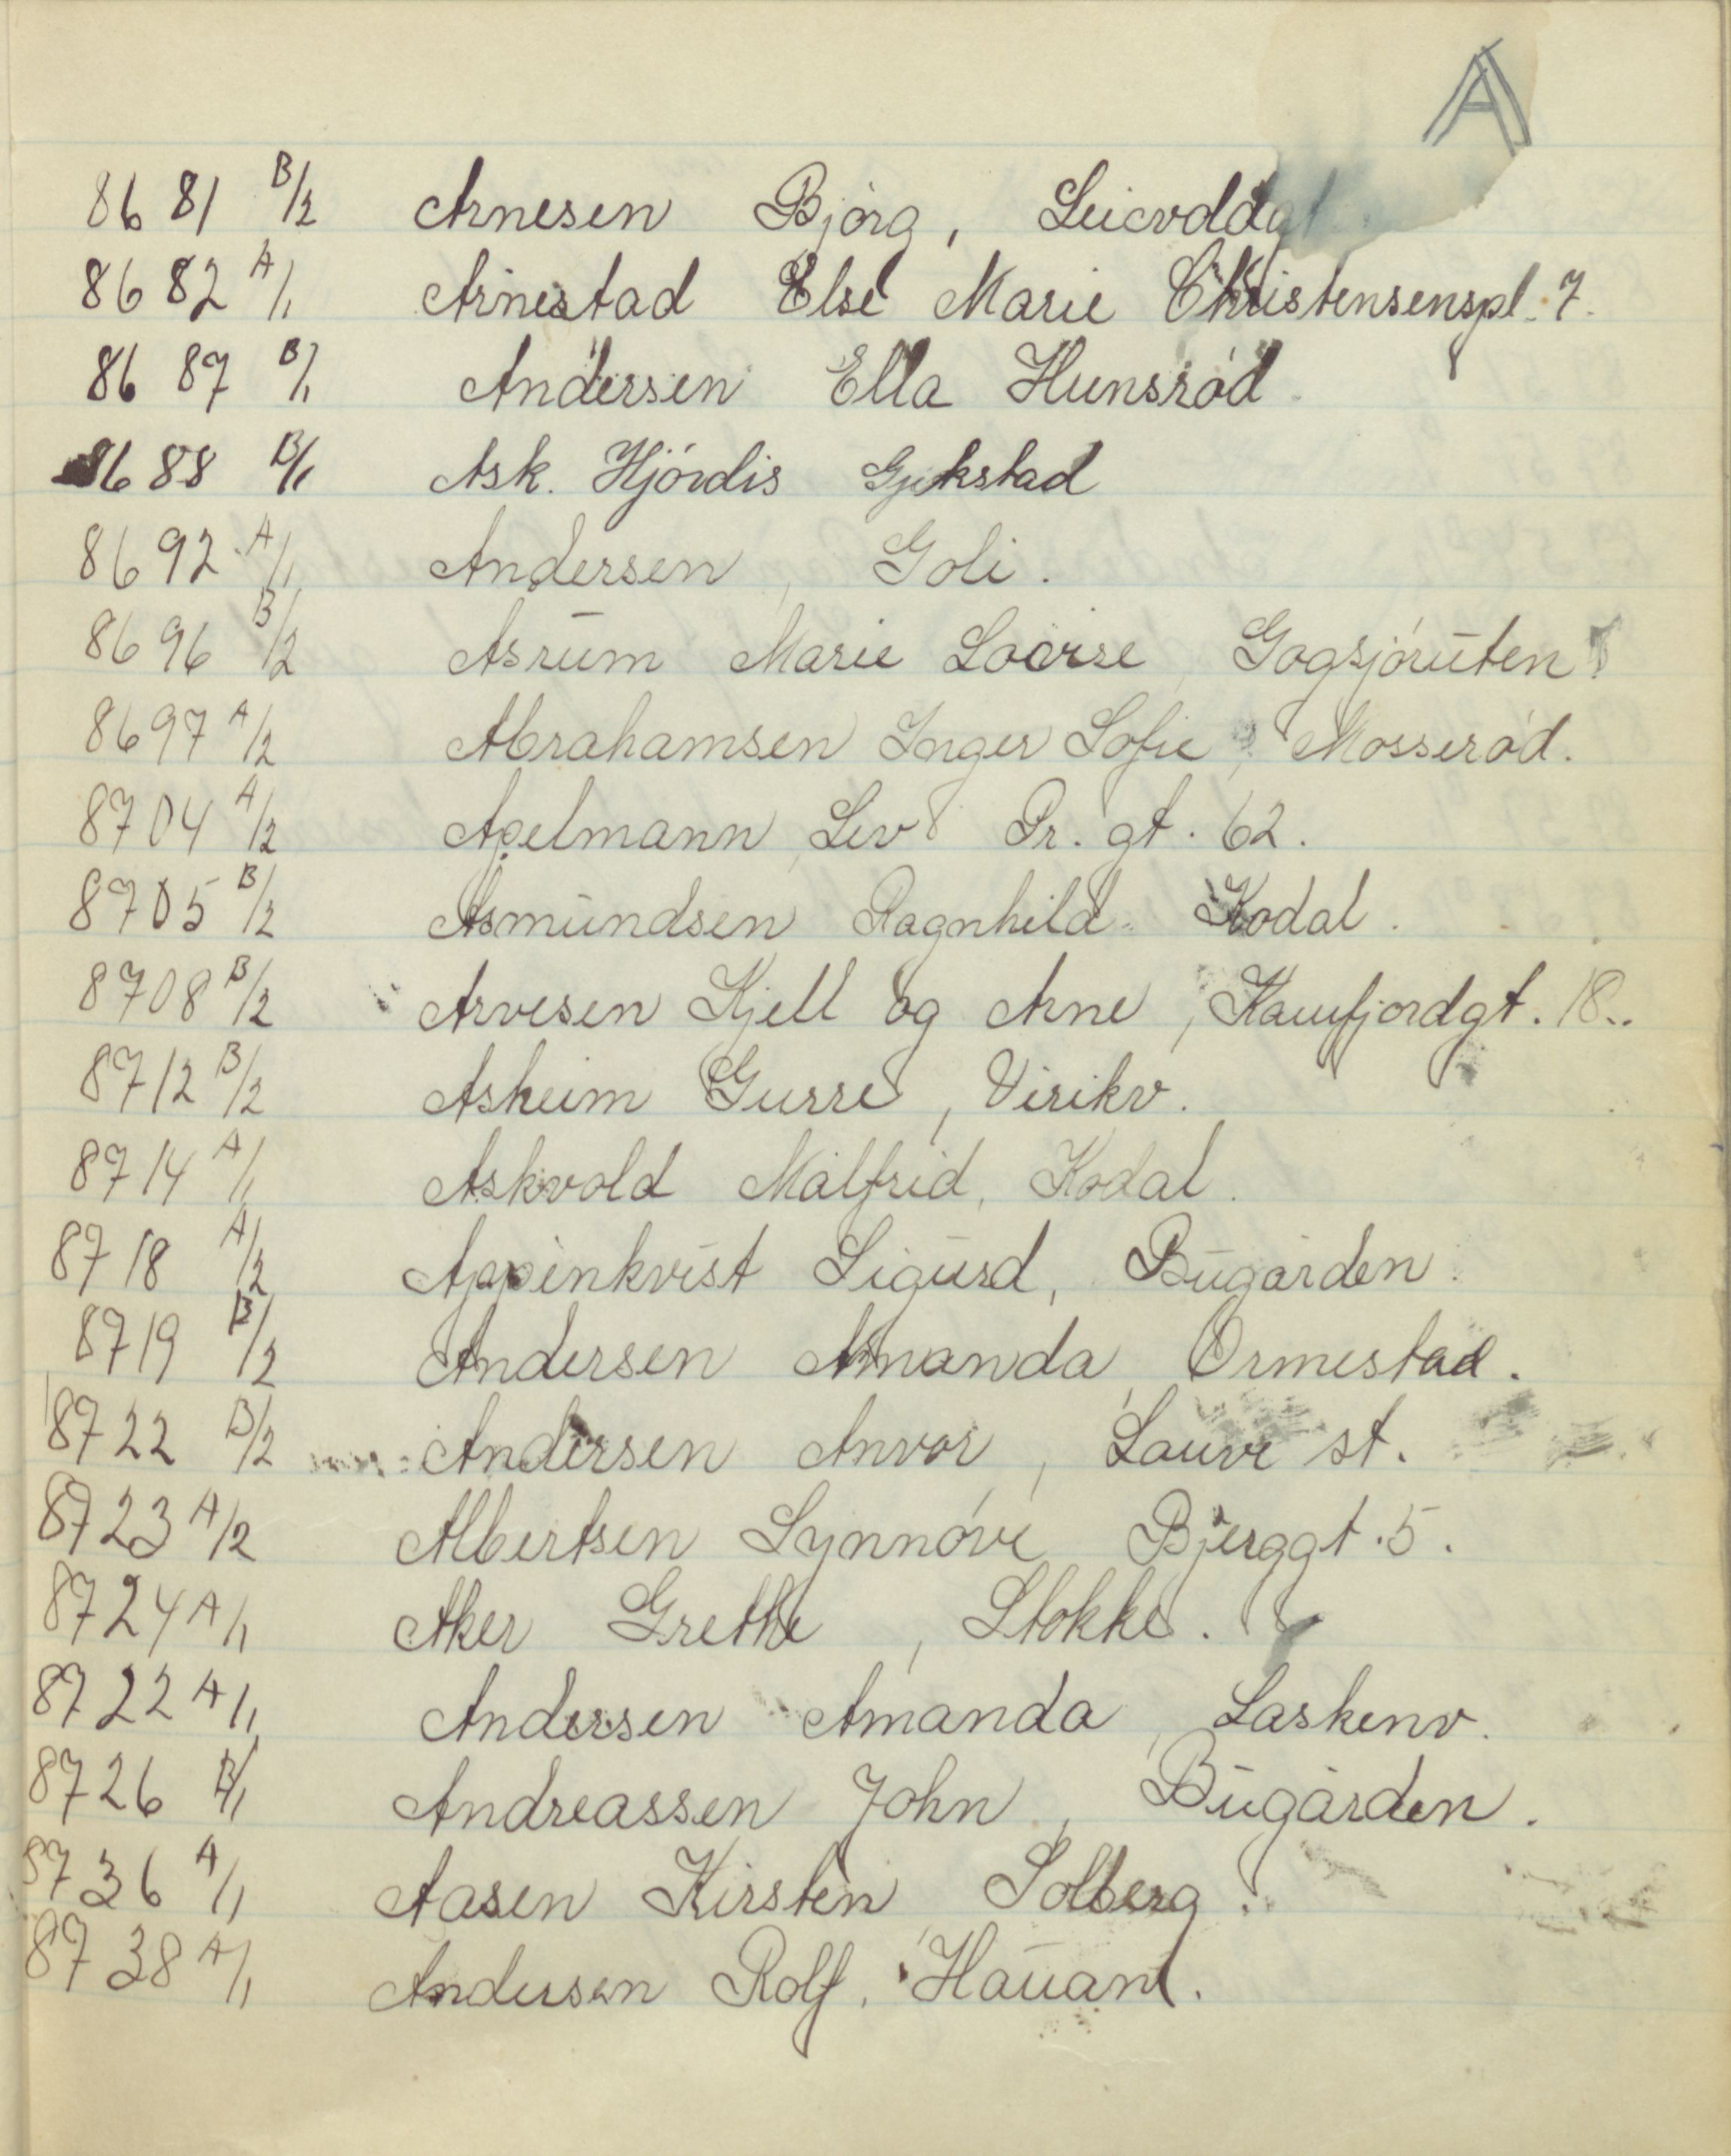 A
8681 B/2 Arnesen Bjørg, Leirvoldgt
8682 A/1 Arnestad Else Marie Christensenspl. 7.
8687 B/1 Andersen Ella Hunsrød
8688 B/1 Ask. Hjördis Gjekstad
8692 A/1 Andersen, Goli.
8696 B/2 Asrum Marie Lovise, Gogsjöruten
8697 A/2 Abrahamsen Inger Sofie, Mosseröd.
8704 A/2 Apelmann, Liv Pr. gt. 62.
8705 B/2 Asmundsen Ragnhild Kodal.
8708 B/2 Arvesen Kjell og Arne, Kamfjordgt. 18.
8712 B/2 Asheim Gurre, Virikv.
8714 A/1 Askvold Målfrid, Kodal.
8718 A/2 Appinkvist Sigurd, Bugården
8719 B/2 Andersen Amanda, Ormestad.
8722 B/2 Andersen Anvor, Lauve st.
8723 A/2 Albertsen Synnöve, Bjerggt. 5.
8724 A/1 Aker Grethe, Stokke.
8722 A/1 Andersen Amanda, Laskenv.
8726 B/1 Andreassen John, Bugården.
8736 A/1 Aasen Kirsten Solberg.
8738 A/1 Andersen Rolf, Hauan.